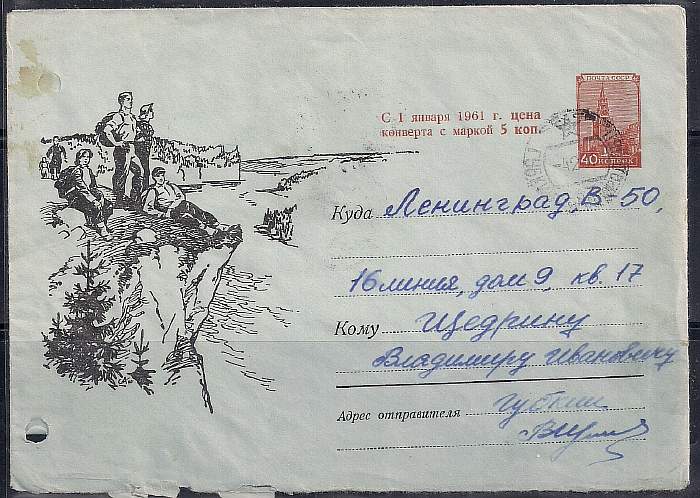 ПОЧТА СССР
40 КОПЕЕК
С 1 января 1961 г. цена
конверта с маркой 5 коп.
Куда Ленинград, В-50,
16 линия, дом 9, кв. 17
Кому Щедрину
Владимиру Ивановичу
Адрес отправителя